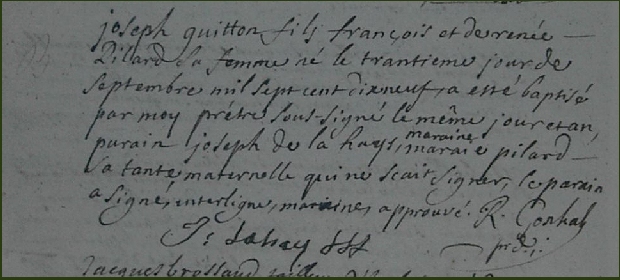 joseph guitton fils françois et de renée
Pilard sa femme né le trantieme jour de
septembre mil sept cent dixneuf, a esté baptisé
par moy prétre sous-signé le même jour et an,
parain joseph de la hays, maraine
maraie pilard
sa tante maternelle qui ne scait signer, le parain
a signé, interligne, maraine, approuvé. R.
J: dahay
ptre: